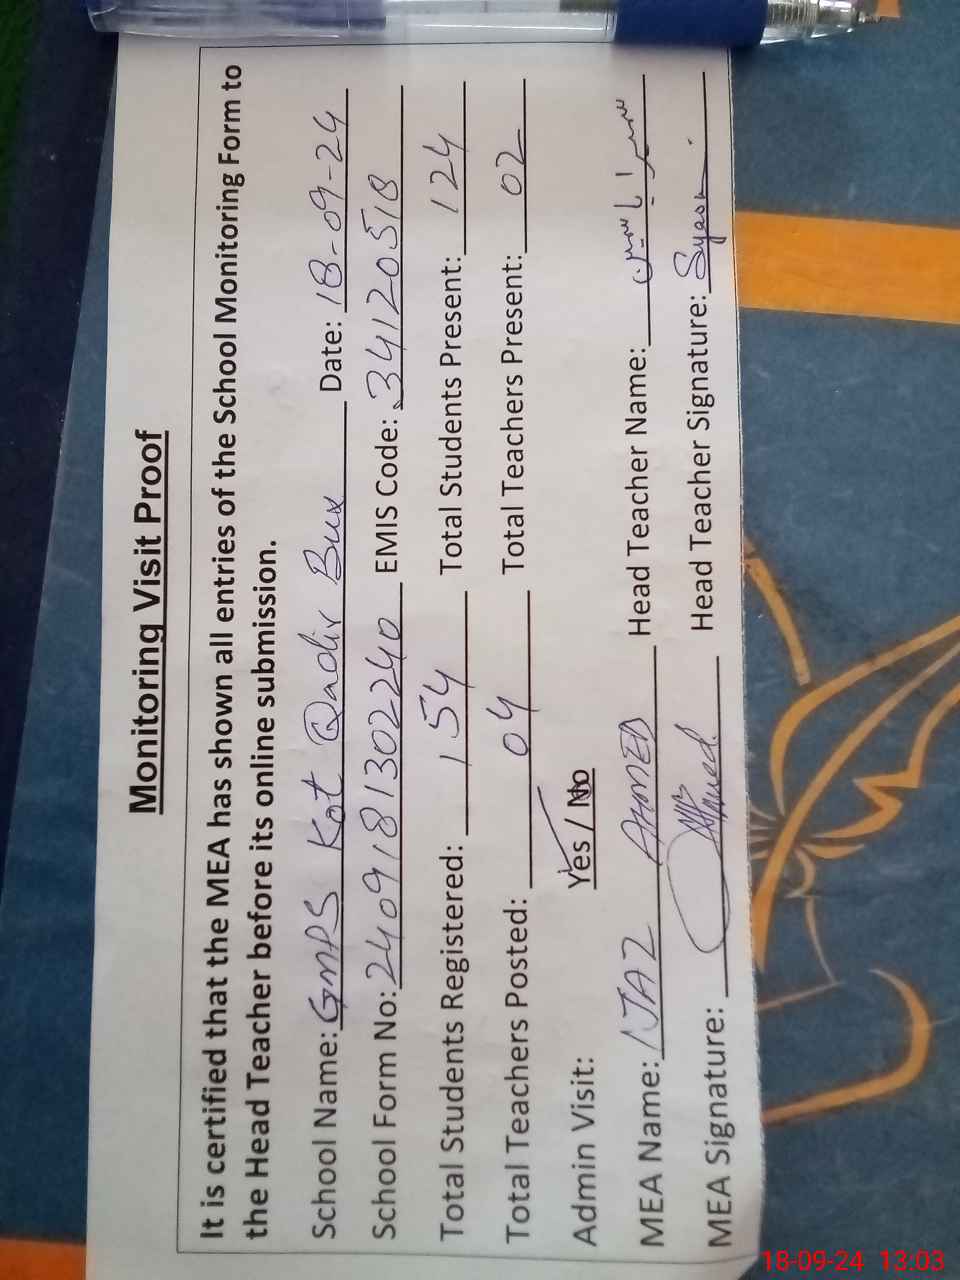 Monitoring Visit Proof
It is certified that the MEA has shown all entries of the School Monitoring Form to
the Head Teacher before its online submission.
School Name: GMPS Kot Qadir Bux Date: 18-09-24
School Form No: 2409181302240 EMIS Code: 34120518
Total Students Registered: 154 Total Students Present: 124
Total Teachers Posted: 04 Total Teachers Present: 02
Admin Visit: Yes / No
MEA Name: IJAZ AHMED Head Teacher Name:
MEA Signature: Ahmed. Head Teacher Signature:
18-09-24 13:03